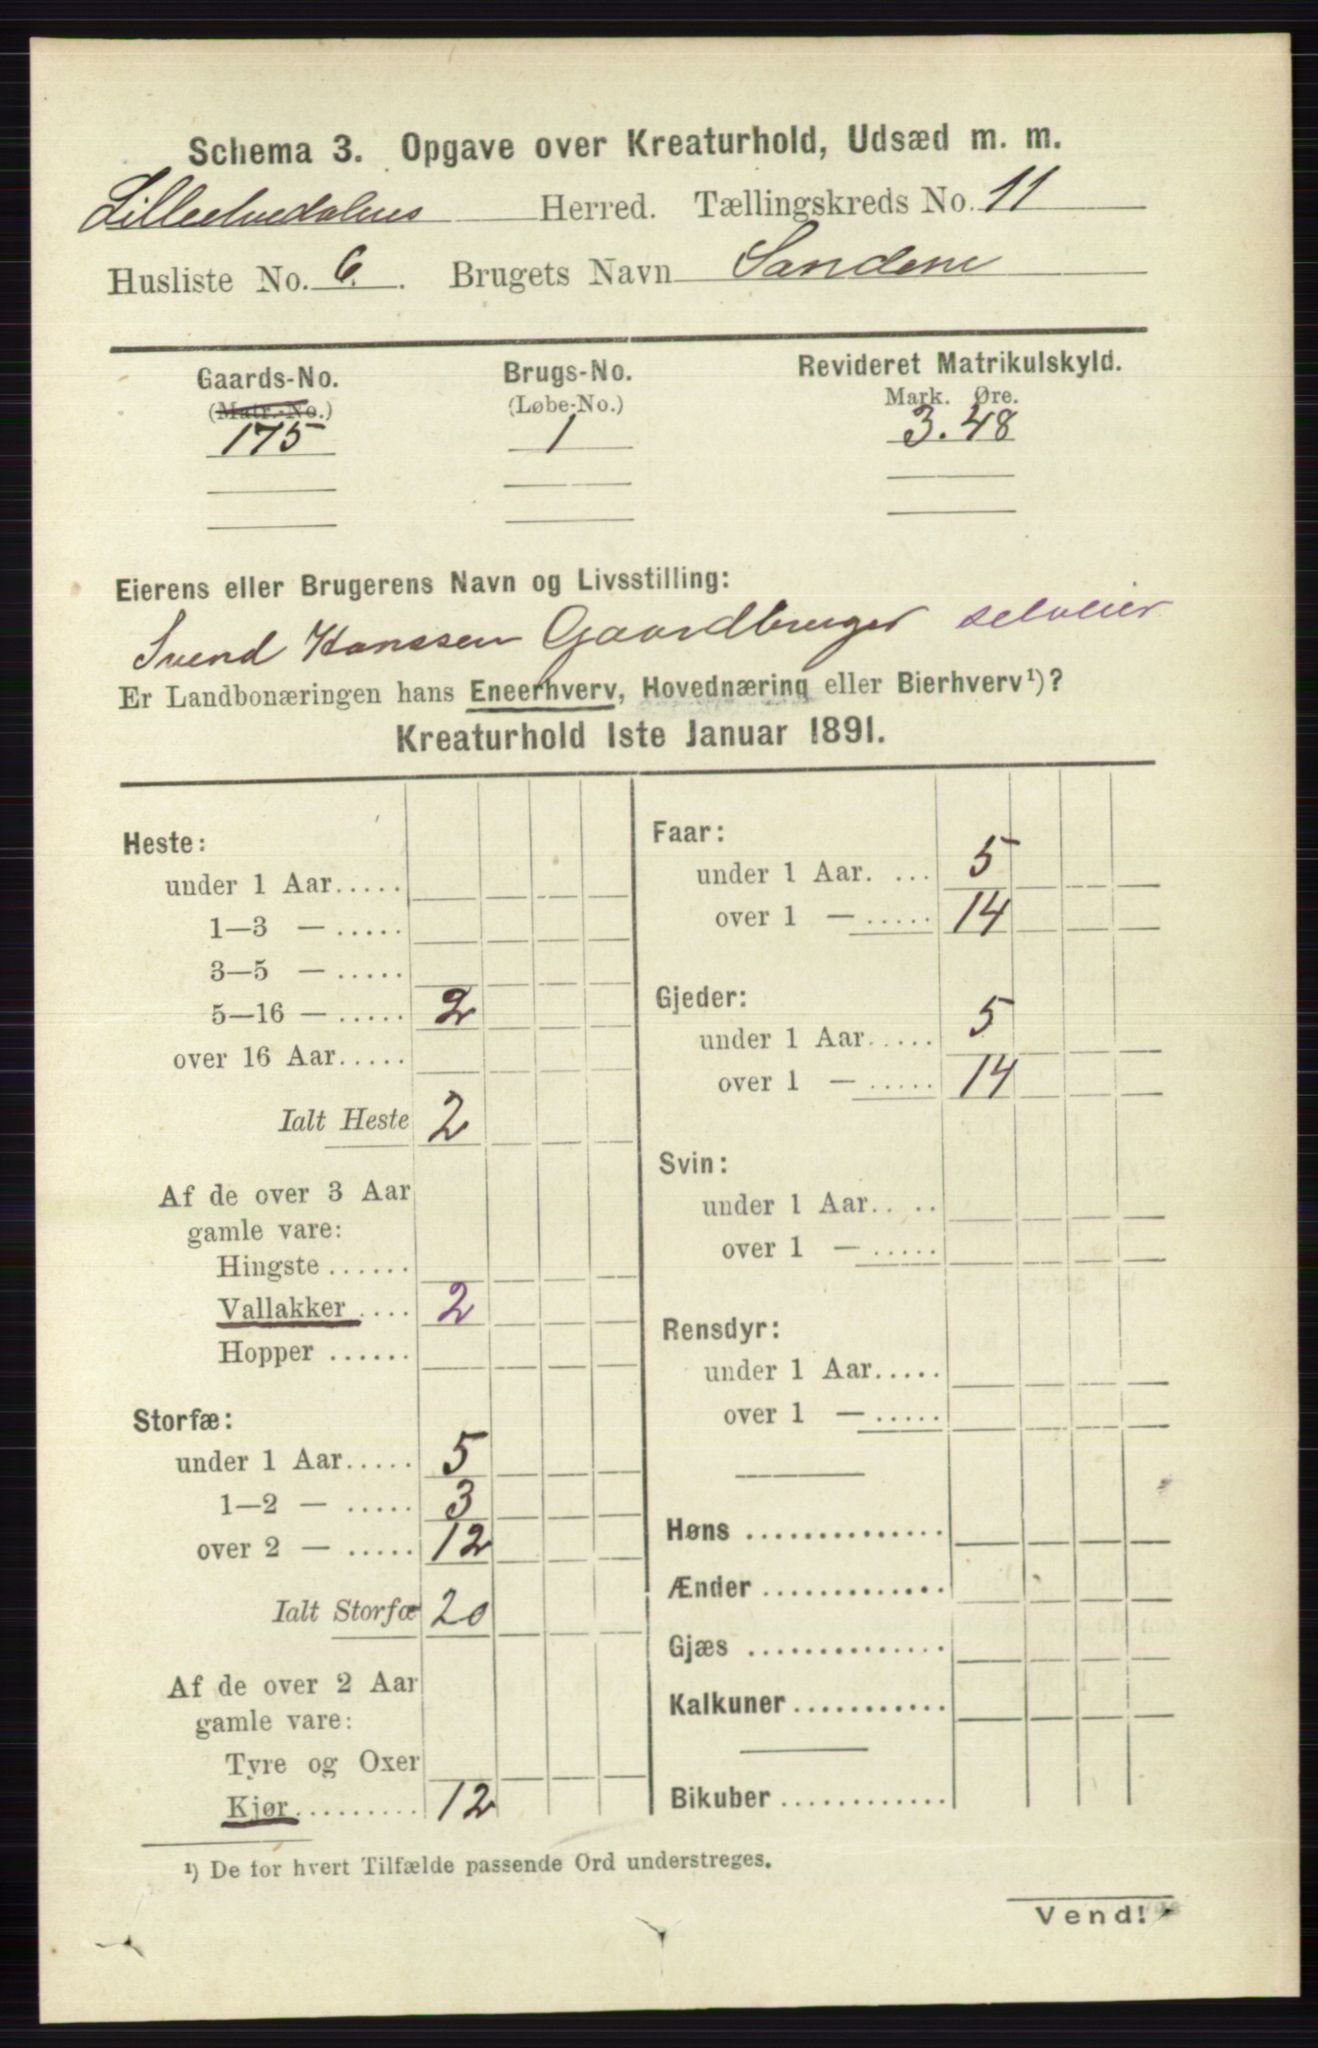 Schema 3. Opgave over Kreaturhold, Udsæd m. m.
Lilleelvedalens Herred. Tællingskreds No. 11
Husliste No. 6. Brugets Navn Sandene
Gaards-No. Brugs-No. Revideret Matrikulskyld.
(Matr.-No.) (Løbe-No.) Mark. Øre.
175 1 3.48
Eierens eller Brugerens Navn og Livsstilling:
Svend Hanssen Gaardbruger selveier
Er Landbonæringen hans Eneerhverv, Hovednæring eller Bierhverv¹)?
Kreaturhold 1ste Januar 1891.
Heste:
under 1 Aar.....
1—3 — .....
3—5 — .....
5—16 — ..... 2
over 16 Aar.....
Ialt Heste 2
Af de over 3 Aar
gamle vare:
Hingste ......
Vallakker .... 2
Hopper ......
Storfæ:
under 1 Aar..... 5
1—2 — ..... 3
over 2 — ..... 12
Ialt Storfæ 20
Af de over 2 Aar
gamle vare:
Tyre og Oxer
Kjør......... 12
Faar:
under 1 Aar. ... 5
over 1 — ..... 14
Gjeder:
under 1 Aar..... 5
over 1 — ..... 14
Svin:
under 1 Aar.. ..
over 1 — .....
Rensdyr:
under 1 Aar.....
over 1 — .....
Høns ..............
Ænder .............
Gjæs ..............
Kalkuner ...........
Bikuber ............
¹) De for hvert Tilfælde passende Ord understreges.
Vend!